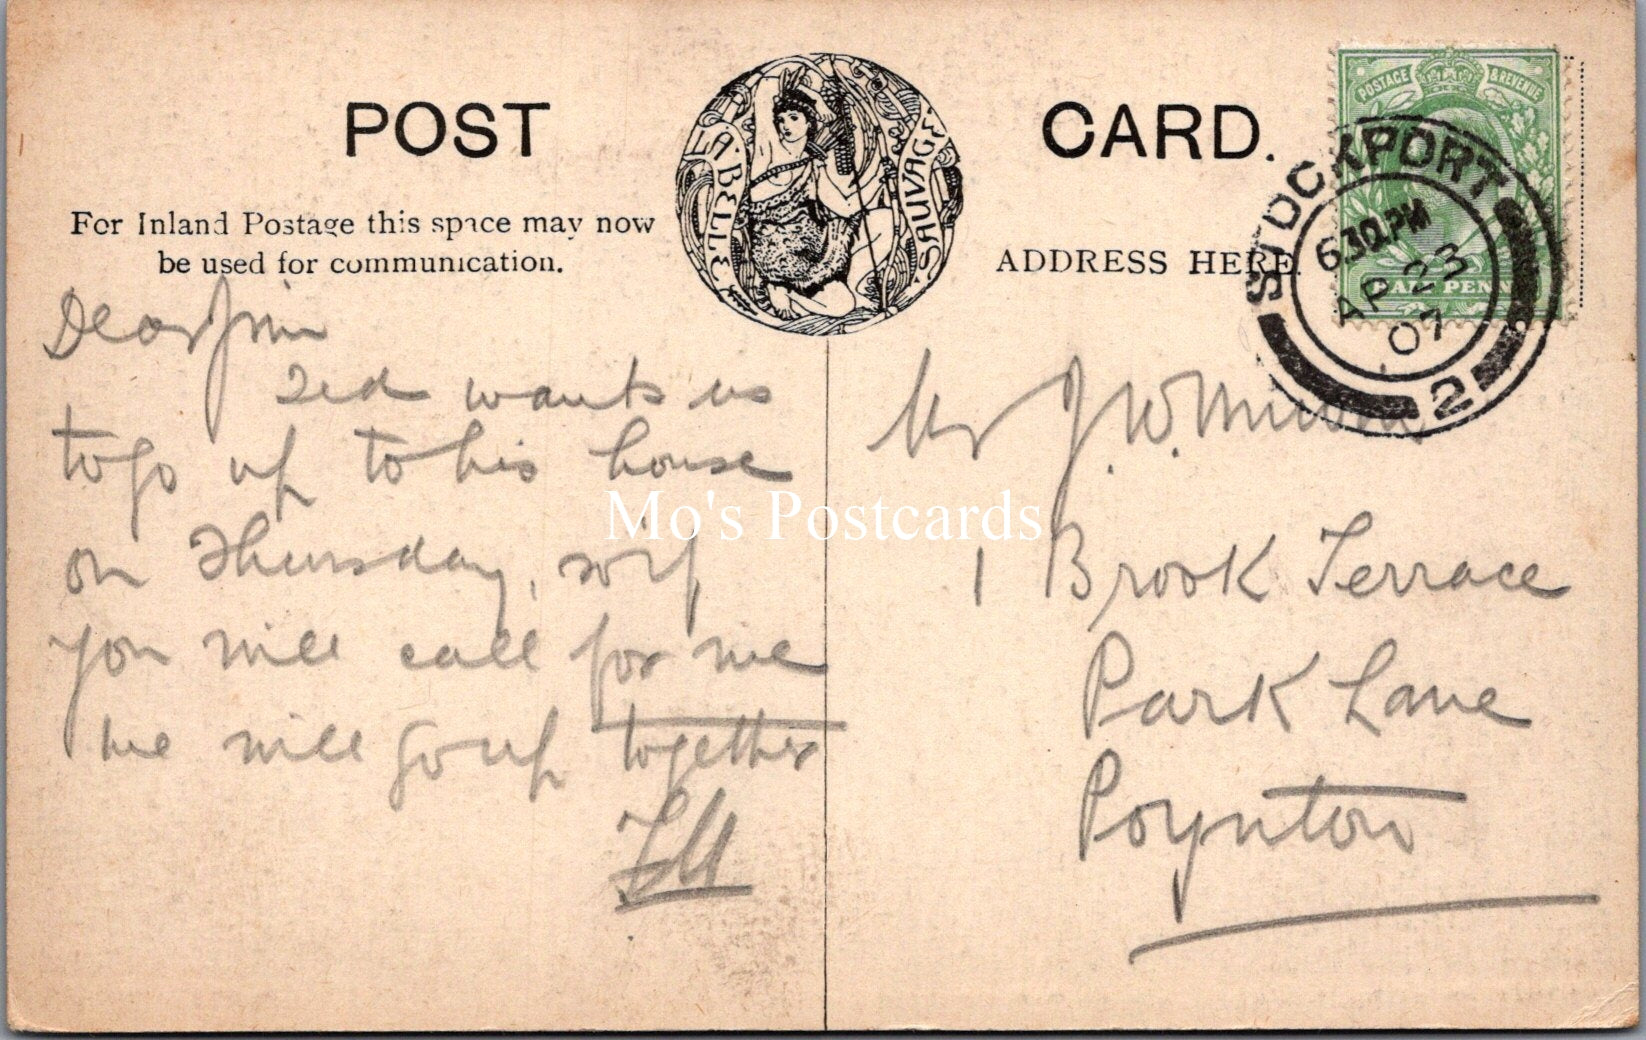 POST CARD.
LA·BELLE SAUVAGE
For Inland Postage this space may now
be used for communication.
ADDRESS HERE.
POSTAGE & REVENUE
HALF PENNY
STOCKPORT
630PM
AP 23
07
2
Dear Jim
Ted wants us
to go up to his house
on Thursday, so if
you will call for me
we will go up together
Mr J.W.
1 Brook Terrace
Park Lane
Poynton
Mo's Postcards